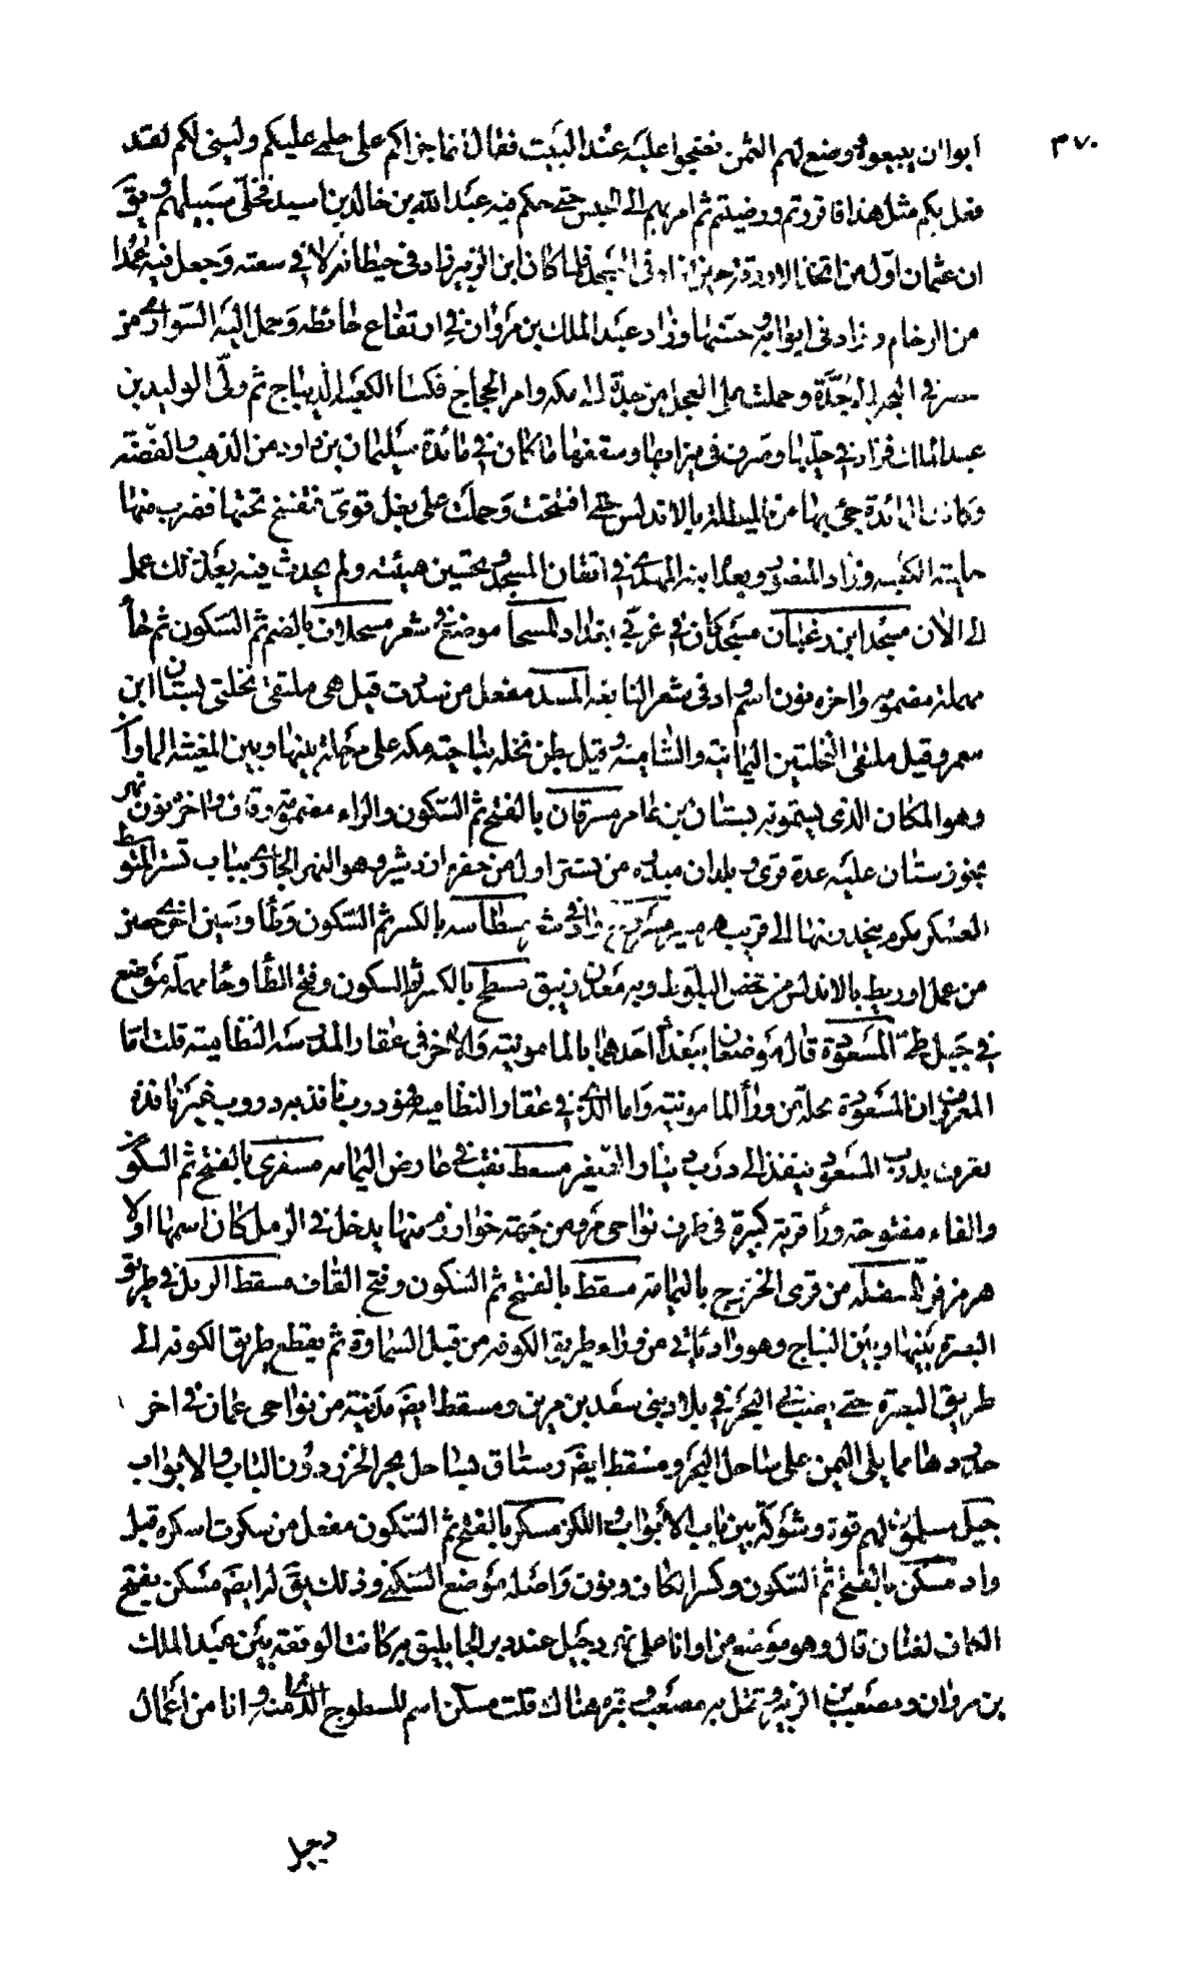 ٣٧٠
ابوا ان يبيعوه ووضع لهم الثمن فضجوا عليه عند البيت فقال انما جراكم على حلمى عليكم ولينى لكم لقد
فعل بكم مثل هذا فاقررتم ورضيتم ثم امر بهم الى الحبس حتى حكم فيه عبد الله بن خالد بن اسيد فخلى سبيلهم ويق
ان عثمان اول من اتخذ الاروقة حين زاد فى المسجد فلما كان ابن الزبير زاد فى حيطانه لا فى سعته وجعل فيه عمدا
من الرخام وزاد فى ابوابه وحسنها وزاد عبد الملك بن مروان فى ارتفاع حائطه وحمل اليه السوارى من
مصر فى البحر الى جدة وحملت على العجل من جدة الى مكه وامر الحجاج فكسا الكعبة الديباج ثم ولى الوليد بن
عبد الملك فزاد فى حليها وصرف فى ميزابها وسقفها ما كان فى مائدة سليمان بن داود من الذهب والفضة
وكانت المائدة جئ بها من طليطلة بالاندلس حتى افتتحت وحملت على بغل قوى فتفسخ تحتها فضرب منها
حلية الكعبه وزاد المنصور وبعده ابنه المهدى فى اتقان المسجد وتحسين هيئته ولم يحدث فيه بعد ذلك عمل
الى الان مسجد ابن رغبان مسجد كان فى غربى بغداد المسحا موضع فى شعر مسحلان بالضم ثم السكون ثم حأ
مهملة مضمومه واخره نون اسم واد فى شعر النابغه المسد مفعل من سددت قيل هى ملتقى نخلتى بستان ابن
معمر وقيل ملتقى النخلتين اليمانية والشامية وقيل بطن نخله بناحية مكه على مرحلة بينها وبين المغيثه الماوان
وهو المكان الذى يسمونه بستان بن عامر مسرقان بالفتح ثم السكون والراء مضمومة وقاف واخره نون نهر
بخوزستان عليه عدة قرى وبلدان مبداه من تستر اول من حفره اردشير وهو النهر الجارى بباب تستر المتوسط
العسكر مكرم ينحدر منها الى قريب واد فى شعر مسطاسه بالكسر ثم السكون وطأ وسين اخرى حصن
من عمل اوريط بالاندلس من فحص البلوط وبه معدن زيبق مسطح بالكسر ثم السكون وفتح الطأ وحا مهملة موضع
فى جبل طى المسعودة قال موضعان ببغداد احدهما بالمامونية والاخر فى عقار المدرسة النظامية قلت اما
المعروف ان المسعودة محلة من ورأ المامونية واما الذى فى عقار النظاميه فهو درب نافذ به دروب غير نافذة
تعرف بدرب المسعود ينفذ الى درب دينار الصغير مسعط نقب فى عارض اليمامه مسفرى بالفتح ثم السكون
والفاء مفتوحة ورأ قرية كبيرة فى طرف نواحى مرو من جهة خوارزم منها يدخل فى الرمل كان اسمها اولا
هرمز فره مسفله من قرى الخزرج باليمامة مسقط بالفتح ثم السكون وفتح القاف مسقط الرمل فى طريق
البصره بينها وبين النباج وهو واد ياتى من وراء طريق الكوفه من قبل السماوة ثم يقطع طريق الكوفه الى
طريق البصره حتى يصب فى البحر فى بلاد بنى سعد بن يبرين ومسقط ايضا مدينة من نواحى عمان فى اخر
حدودها مما يلى اليمن على ساحل البحر ومسقط ايضا رستاق بساحل بحر الخزر دون الباب والابواب
جيل مسلمون لهم قوة وشوكة بين باب الابواب واللكز مسكر بالفتح ثم السكون مفعل من سكرت اسكره قيل
واد مسكن بالفتح ثم السكون وكسر الكاف ونون واصله موضع السكنى وذلك يق له ايضا مسكن بفتح
الكاف لغتان قال وهو موضع من اوانا على نهر دجيل عند دير الجاثليق به كانت الوقعة بين عبد الملك
بن مروان ومصعب بن الزبير وقتل به مصعب وقبره هناك قلت مسكن اسم للسطوج الذى منه وانا من اعمال
دجيل